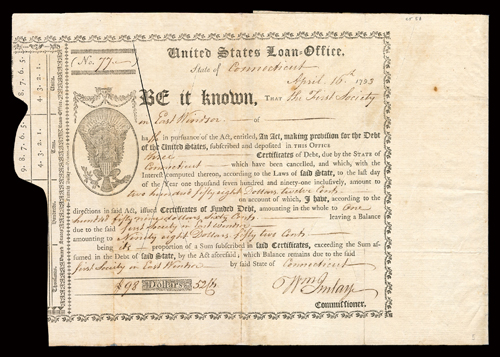 (No. 77
United States Loan-Office.
State of Connecticut
April 16th 1793
BE it known, THAT The First Society
in East Windsor of
hath in pursuance of the Act, entitled, An Act, making provision for the Debt
of the United States, subscribed and deposited in THIS OFFICE
three Certificates of Debt, due by the STATE of
Connecticut which have been cancelled, and which, with the
Interest computed thereon, according to the Laws of said State, to the last day
of the Year one thousand seven hundred and ninety-one inclusively, amount to
two hundred fifty eight Dollars twelve Cents
on account of which, I have, according to the
directions in said Act, issued Certificates of Funded Debt, amounting in the whole to one
hundred fifty nine dollars sixty Cents leaving a Balance
due to the said first Society in East Windsor
amounting to Ninety eight Dollars fifty two Cents
being its proportion of a Sum subscribed in said Certificates, exceeding the Sum assumed
in the Debt of said State, by the Act aforesaid; which Balance remains due to the said
first Society in East Windsor by said State of Connecticut
$98 Dollars 52
Wm Imlay
Commissioner.
9. 8. 7. 6. 5.
4. 3. 2. 1.
Thousands.
Hundreds.